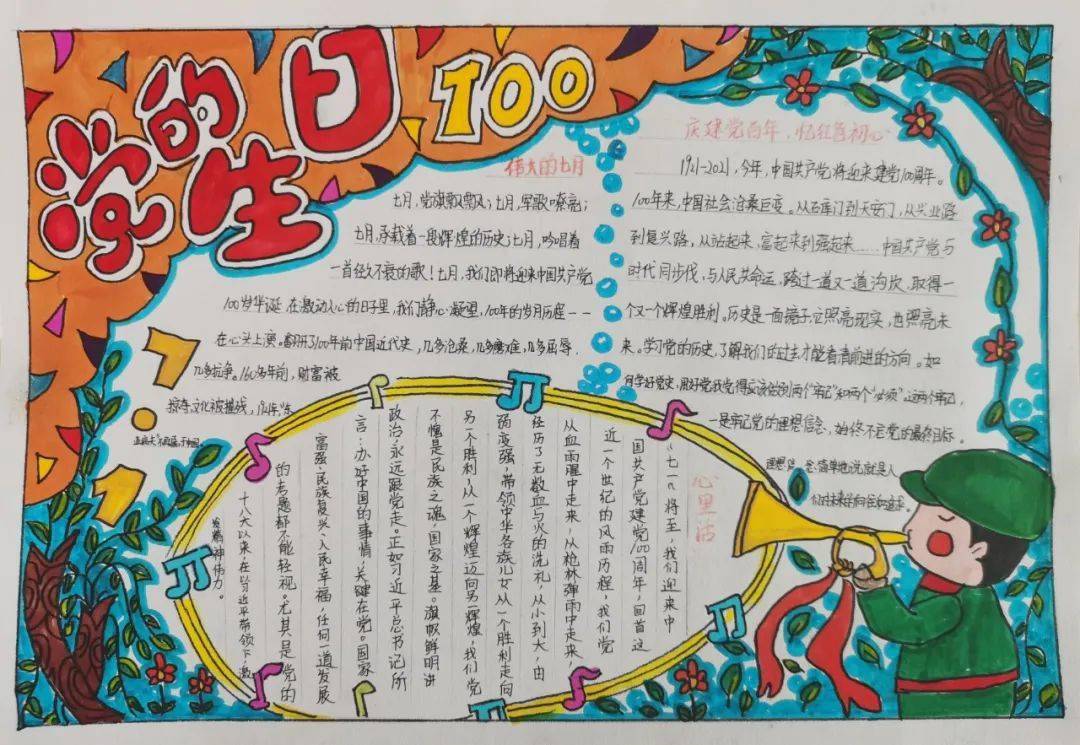 党的
生日
100
伟大的七月
七月,党旗飘飘;七月,军歌嘹亮;
七月,承载着一段辉煌的历史;七月,吟唱着
一首经久不衰的歌!七月,我们即将迎来中国共产党
100岁华诞,在激动人心的日子里,我们静心凝望,100年的岁月历程--
在心头上演。翻开了100年前中国近代史,几多沧桑,几多磨难,几多屈辱,
几多抗争。160多年前,财富被
掠夺,文化被摧残,
庆建党百年,忆红色初心
1921-2021,今年,中国共产党将迎来建党100周年。
100年来,中国社会沧桑巨变。从石库门到天安门,从兴业路
到复兴路,从站起来、富起来到强起来……中国共产党与
时代同步伐,与人民共命运,跨过一道又一道沟坎,取得一
个又一个辉煌胜利。历史是一面镜子,它照亮现实,也照亮未
来。学习党的历史,了解我们的过去才能看清前进的方向。如
何学好党史,用好党史,我觉得应该做到两个“牢记”和两个“必须”。这两个牢记,
一是牢记党的理想信念,始终不忘党的最终目标。
心里话
“七一”将至,我们迎来中
国共产党建党100周年,回首这
近一个世纪的风雨历程,我们党
从血雨腥中走来,从枪林弹雨中走来,
经历了无数血与火的洗礼,从小到大,由
弱变强,带领中华各族儿女从一个胜利走向
另一个胜利,从一个辉煌迈向另一辉煌,我们党
不愧是民族之魂,国家之基。旗帜鲜明讲
政治,永远跟党走。正如习近平总书记所
言:办好中国的事情,关键在党。国家
富强、民族复兴、人民幸福,任何一道发展
的考题都不能轻视。尤其是党的
十八大以来,在习近平带领下,激
发精神伟力。